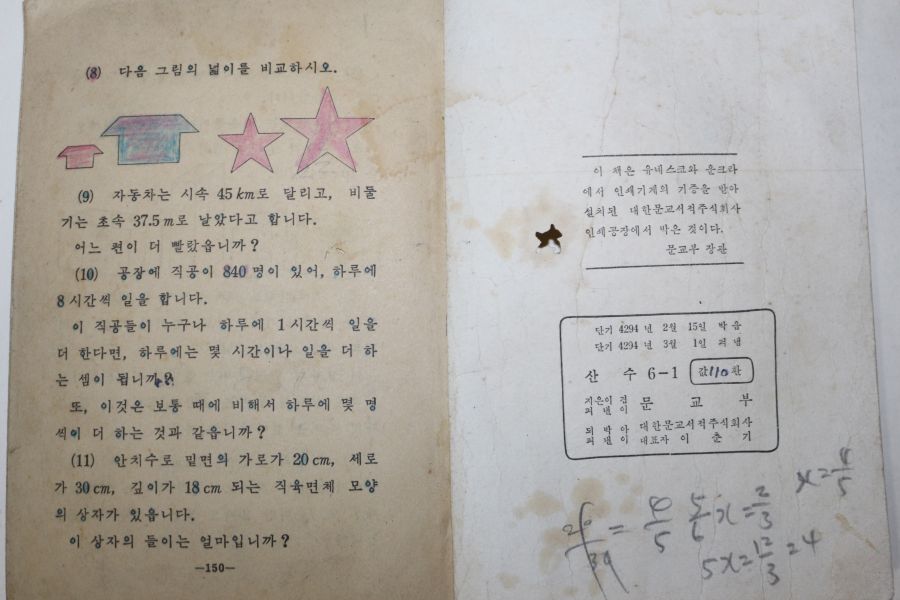 (8) 다음 그림의 넓이를 비교하시오.
(9) 자동차는 시속 45 km로 달리고, 비둘
기는 초속 37.5 m로 날았다고 합니다.
어느 편이 더 빨랐읍니까?
(10) 공장에 직공이 840 명이 있어, 하루에
8 시간씩 일을 합니다.
이 직공들이 누구나 하루에 1 시간씩 일을
더 한다면, 하루에는 몇 시간이나 일을 더 하
는 셈이 됩니까?
또, 이것은 보통 때에 비해서 하루에 몇 명
씩이 더 하는 것과 같읍니까?
(11) 안치수로 밑면의 가로가 20 cm, 세로
가 30 cm, 깊이가 18 cm 되는 직육면체 모양
의 상자가 있읍니다.
이 상자의 들이는 얼마입니까?
—150—
이 책은 유네스코와 운크라
에서 인쇄기계의 기증을 받아
설치된 대한문교서적주식회사
인쇄공장에서 박은 것이다.
문교부 장관
단기 4294 년 2월 15일 박음
단기 4294 년 3월 1일 펴냄
산 수 6-1 값110환
지은이 겸 펴낸이 문 교 부
되박아 펴낸이 대한문교서적주식회사
대표자 이 춘 기
x=4/5
5/6 x=2/3
5x=12/3=4